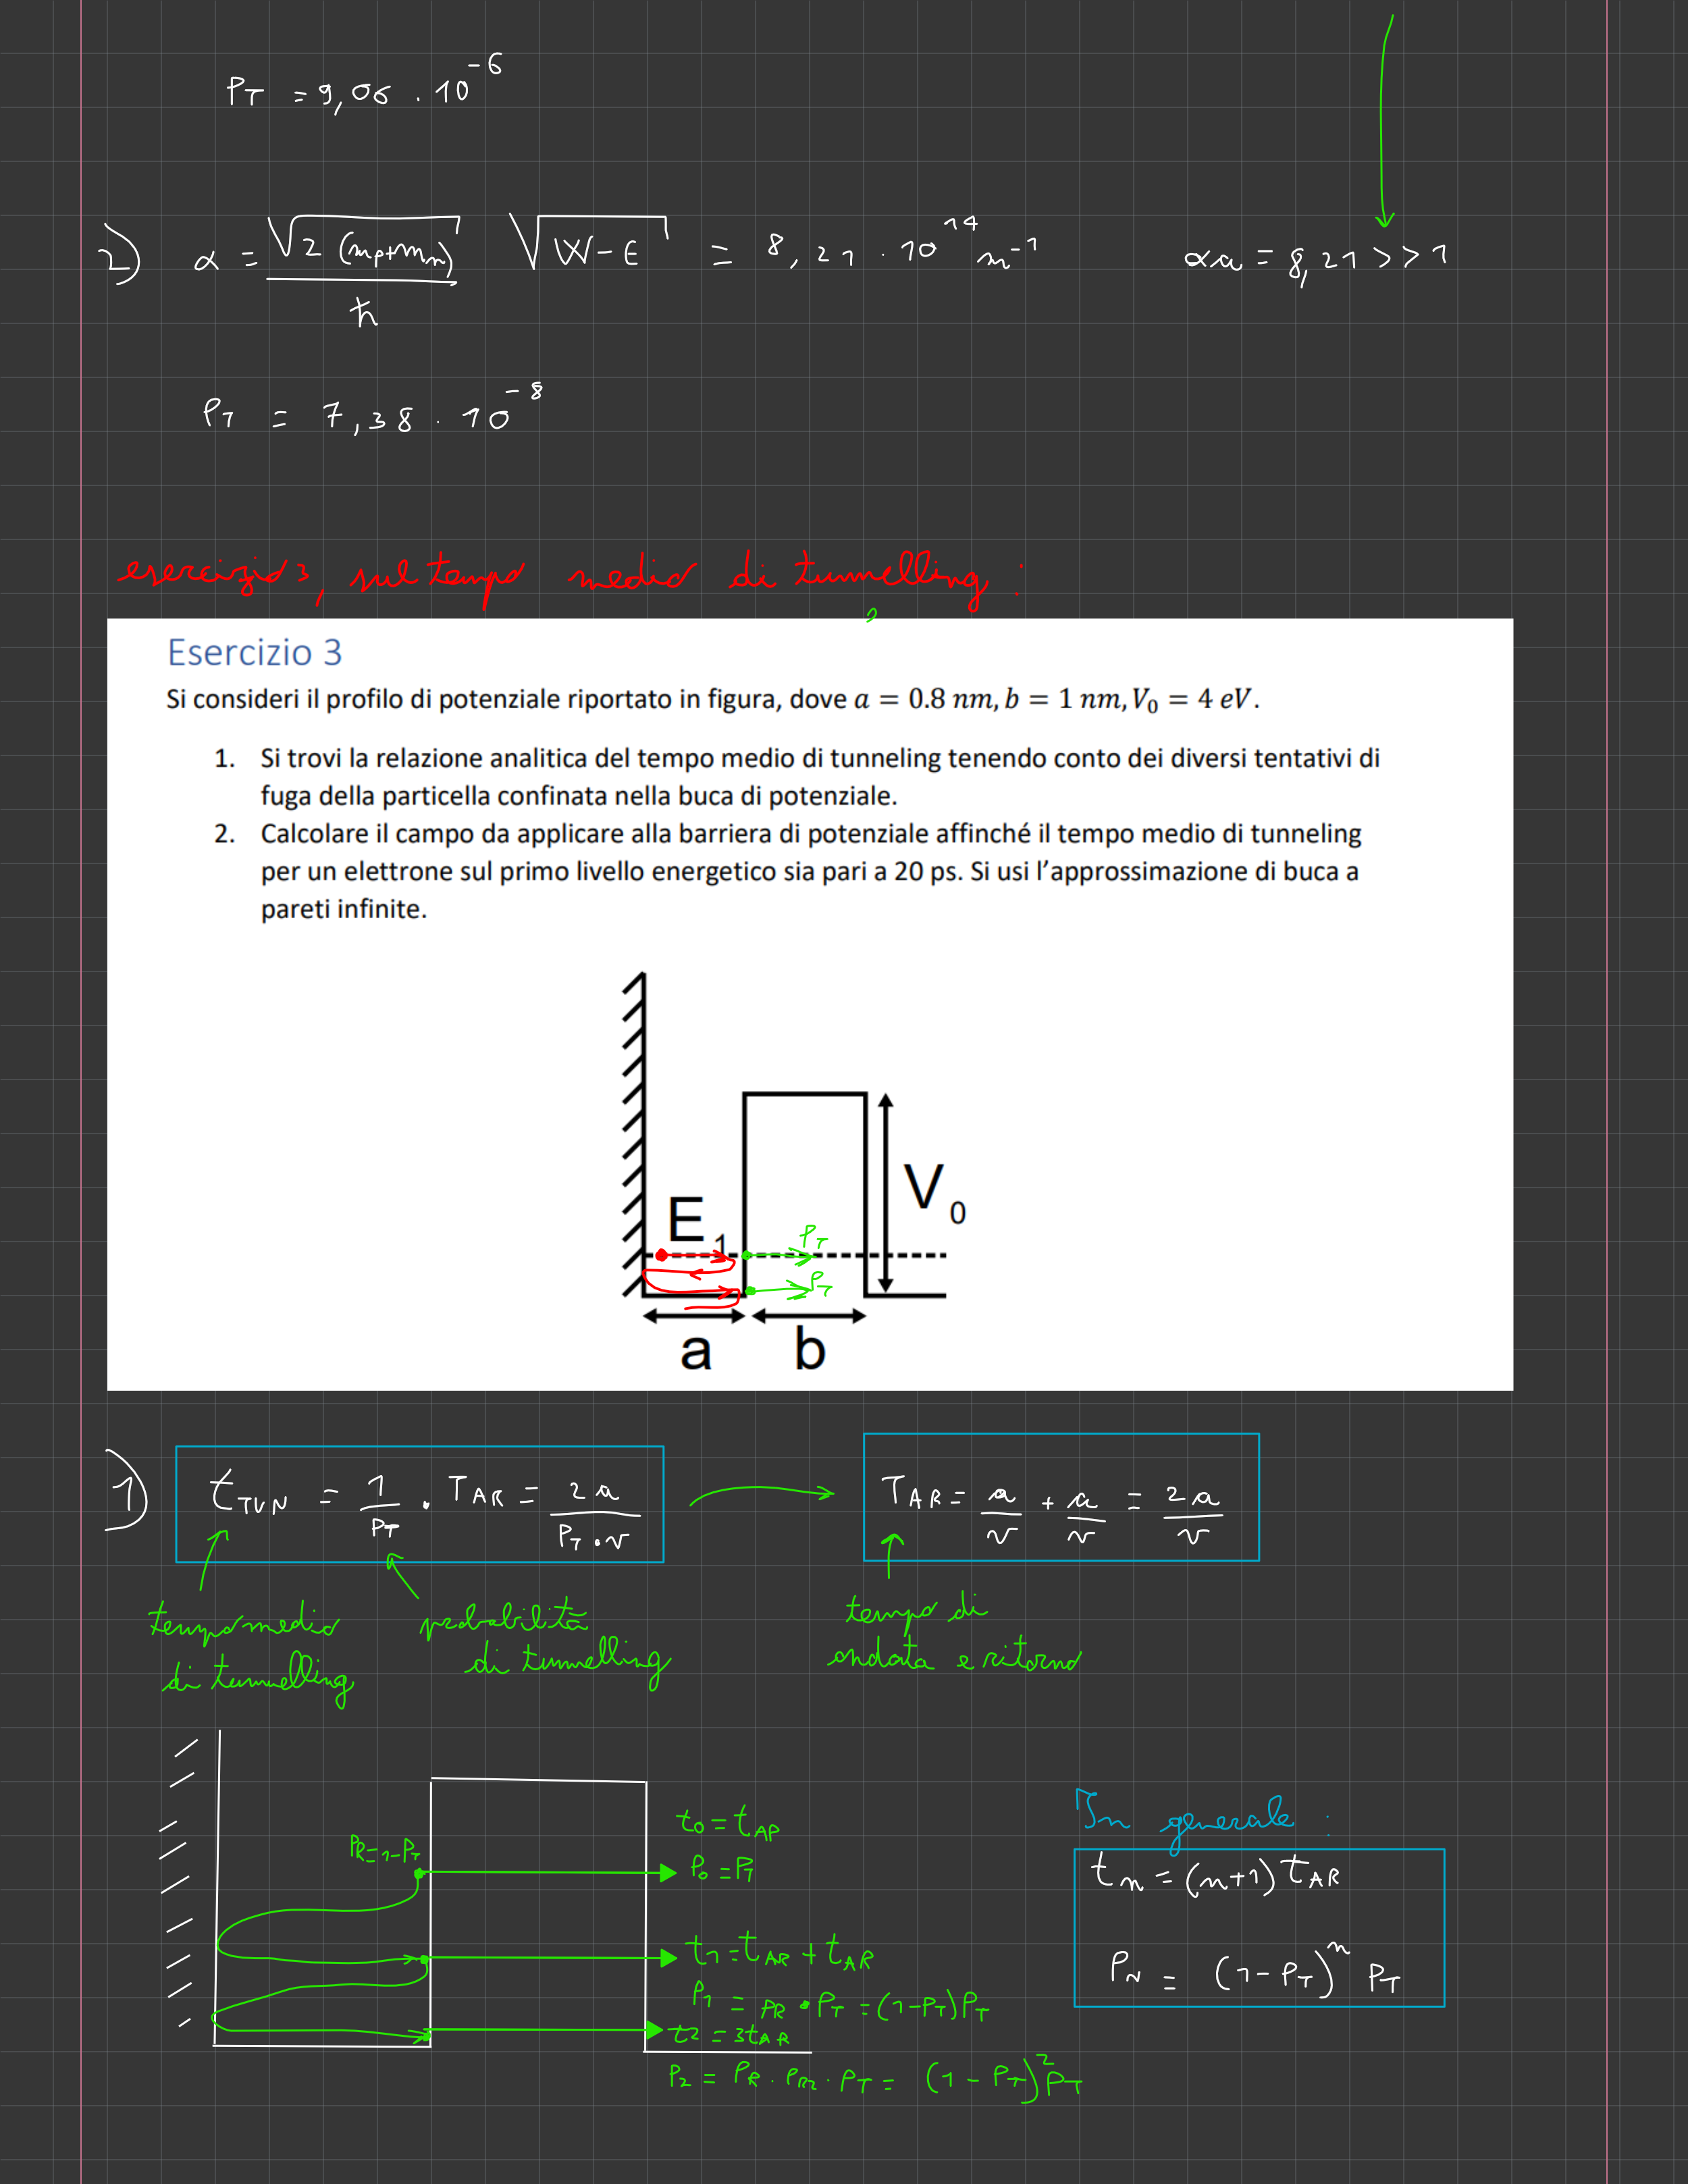 P_T = 9,06 · 10^-6
2) α = √(2 (m_p+m_n)) / ħ √(W-E) = 8,21 · 10^14 m^-1 αa = 8,21 >> 1
P_T = 7,38 · 10^-8
esercizio 3, sul tempo medio di tunnelling:
Esercizio 3
Si consideri il profilo di potenziale riportato in figura, dove a = 0.8 nm, b = 1 nm, V_0 = 4 eV.
1. Si trovi la relazione analitica del tempo medio di tunneling tenendo conto dei diversi tentativi di
fuga della particella confinata nella buca di potenziale.
2. Calcolare il campo da applicare alla barriera di potenziale affinché il tempo medio di tunneling
per un elettrone sul primo livello energetico sia pari a 20 ps. Si usi l'approssimazione di buca a
pareti infinite.
V_0
E_1
P_T
P_T
a b
1) t_TUN = 1/P_T · T_AR = 2a / (P_T · v) T_AR = a/v + a/v = 2a/v
tempo medio
di tunnelling
probabilità
di tunnelling
tempo di
andata e ritorno
P_R=1-P_T
t_0 = t_AP
P_0 = P_T
t_1 = t_AR + t_AR
P_1 = P_R · P_T = (1-P_T)P_T
t_2 = 3t_AR
P_2 = P_R · P_R2 · P_T = (1-P_T)^2 P_T
In generale:
t_n = (n+1) t_AR
P_N = (1-P_T)^n P_T